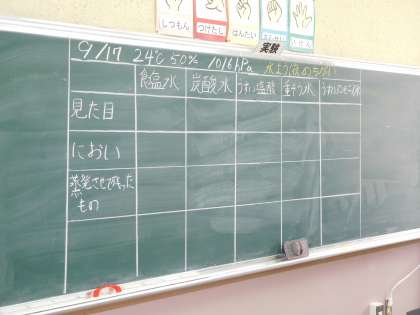 しつもん
つけたし
はんたい
さんせい
実験
9/17 24℃ 50% 1016hPa 水よう液のちがい
食塩水 炭酸水 うすい塩酸 重そう水 うすいアンモニア水
見た目
におい
蒸発させて残った
もの